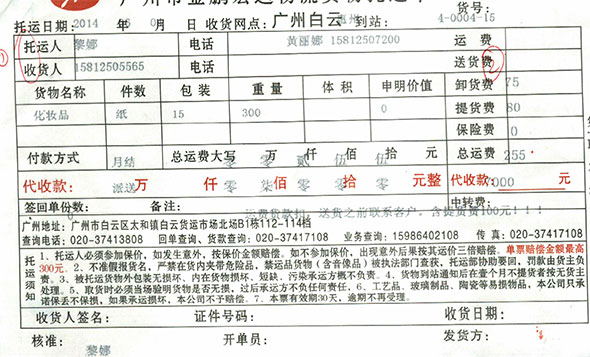 货号:
托运日期: 2014 年 6 月 日 收货网点: 广州白云 到站: 4-0004-15
托运人 黎娜 电话 黄丽娜 15812507200 运费
收货人 15812505565 电话 送货费
货物名称 件数 包装 重量 体积 申明价值 卸货费 75
化妆品 纸 15 300 0 提货费 80
保险费 0
付款方式 月结 总运费大写 零万零仟贰佰伍拾伍元 总运费 255
代收款: 派送 万 仟 佰 拾 元整 代收款: 000 元
签回单份数: 备注: 运费货款扣, 送货之前联系客户, 含提货费100元!!! 中转费:
广州地址: 广州市白云区太和镇白云货运市场北场B1栋112-114档
查询电话: 020-37413808 回单查询、货款查询: 020-37417108 业务查询: 15986402108 传真: 020-37417108
托运须知
1、托运人必须参加保价, 如发生意外, 按保价金额赔偿。如不参加保价, 出现意外后果按其运价三倍赔偿。单票赔偿金额最高
300元。2、不准假报货名, 严禁在货内夹带危险品、禁运品货物(含音像品)被执法部门查获, 托运部协助要回, 罚款由货主负
责。3、被托运货物外包装无损坏、内在货物损坏、短缺、污染承运方概不负责。4、货物到站通知后在壹个月不提货者按无货主
处理。5、取货时必须当场验明货物是否无损, 过后承运方不负任何责任。6、工艺品、玻璃制品、陶瓷等易损物品, 本公司只承
诺保丢不保损, 如果承运损坏, 本公司不予赔偿。7、本票有效期30天, 逾期不再受理。
收货人签名: 证件号码: 收货日期:
核准: 开单员: 发货方:
黎娜